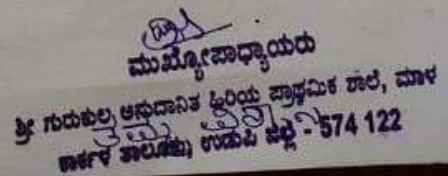 ಮುಖ್ಯೋಪಾಧ್ಯಾಯರು
ಶ್ರೀ ಗುರುಕುಲ ಅನುದಾನಿತ ಹಿರಿಯ ಪ್ರಾಥಮಿಕ ಶಾಲೆ, ಮಾಳ
ಕಾರ್ಕಳ ತಾಲೂಕು, ಉಡುಪಿ ಜಿಲ್ಲೆ - 574 122